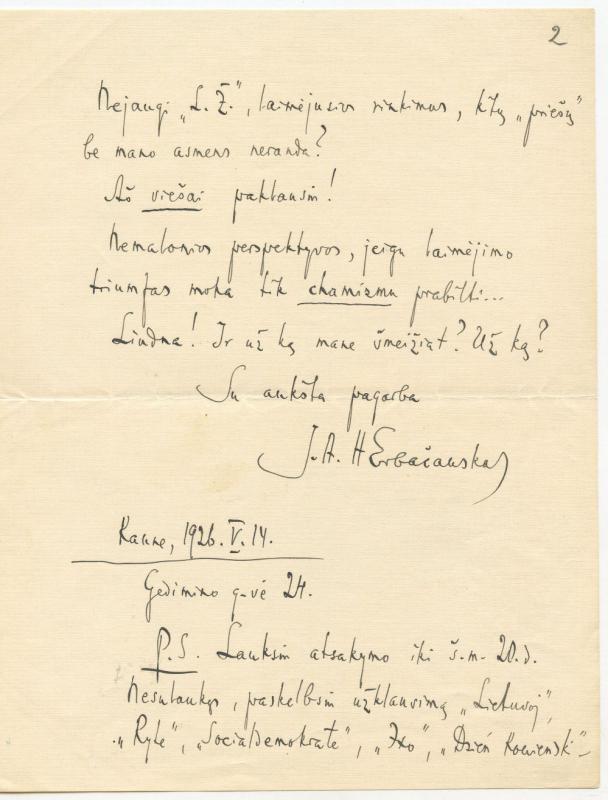 2
Nejaugi „L. Ž.", laimėjusios rinkimus, kitų „priešų"
be mano asmens neranda?
Aš viešai paklausiu!
Nemalonios perspektyvos, jeigu laimėjimo
triumfas moka tik chamizmu prabilti...
Liūdna! Ir už ką mane šmeižiat? Už ką?
Su aukšta pagarba
J. A. HErbačauskas
Kaune, 1926. V. 14.
Gedimino g-vė 24.
P.S. Lauksiu atsakymo iki š. m. 20. d.
Nesulaukęs, paskelbsiu užklausimą „Lietuvoj",
„Ryte", „Socialdemokrate", „Эхо", „Dzień Kowieński"